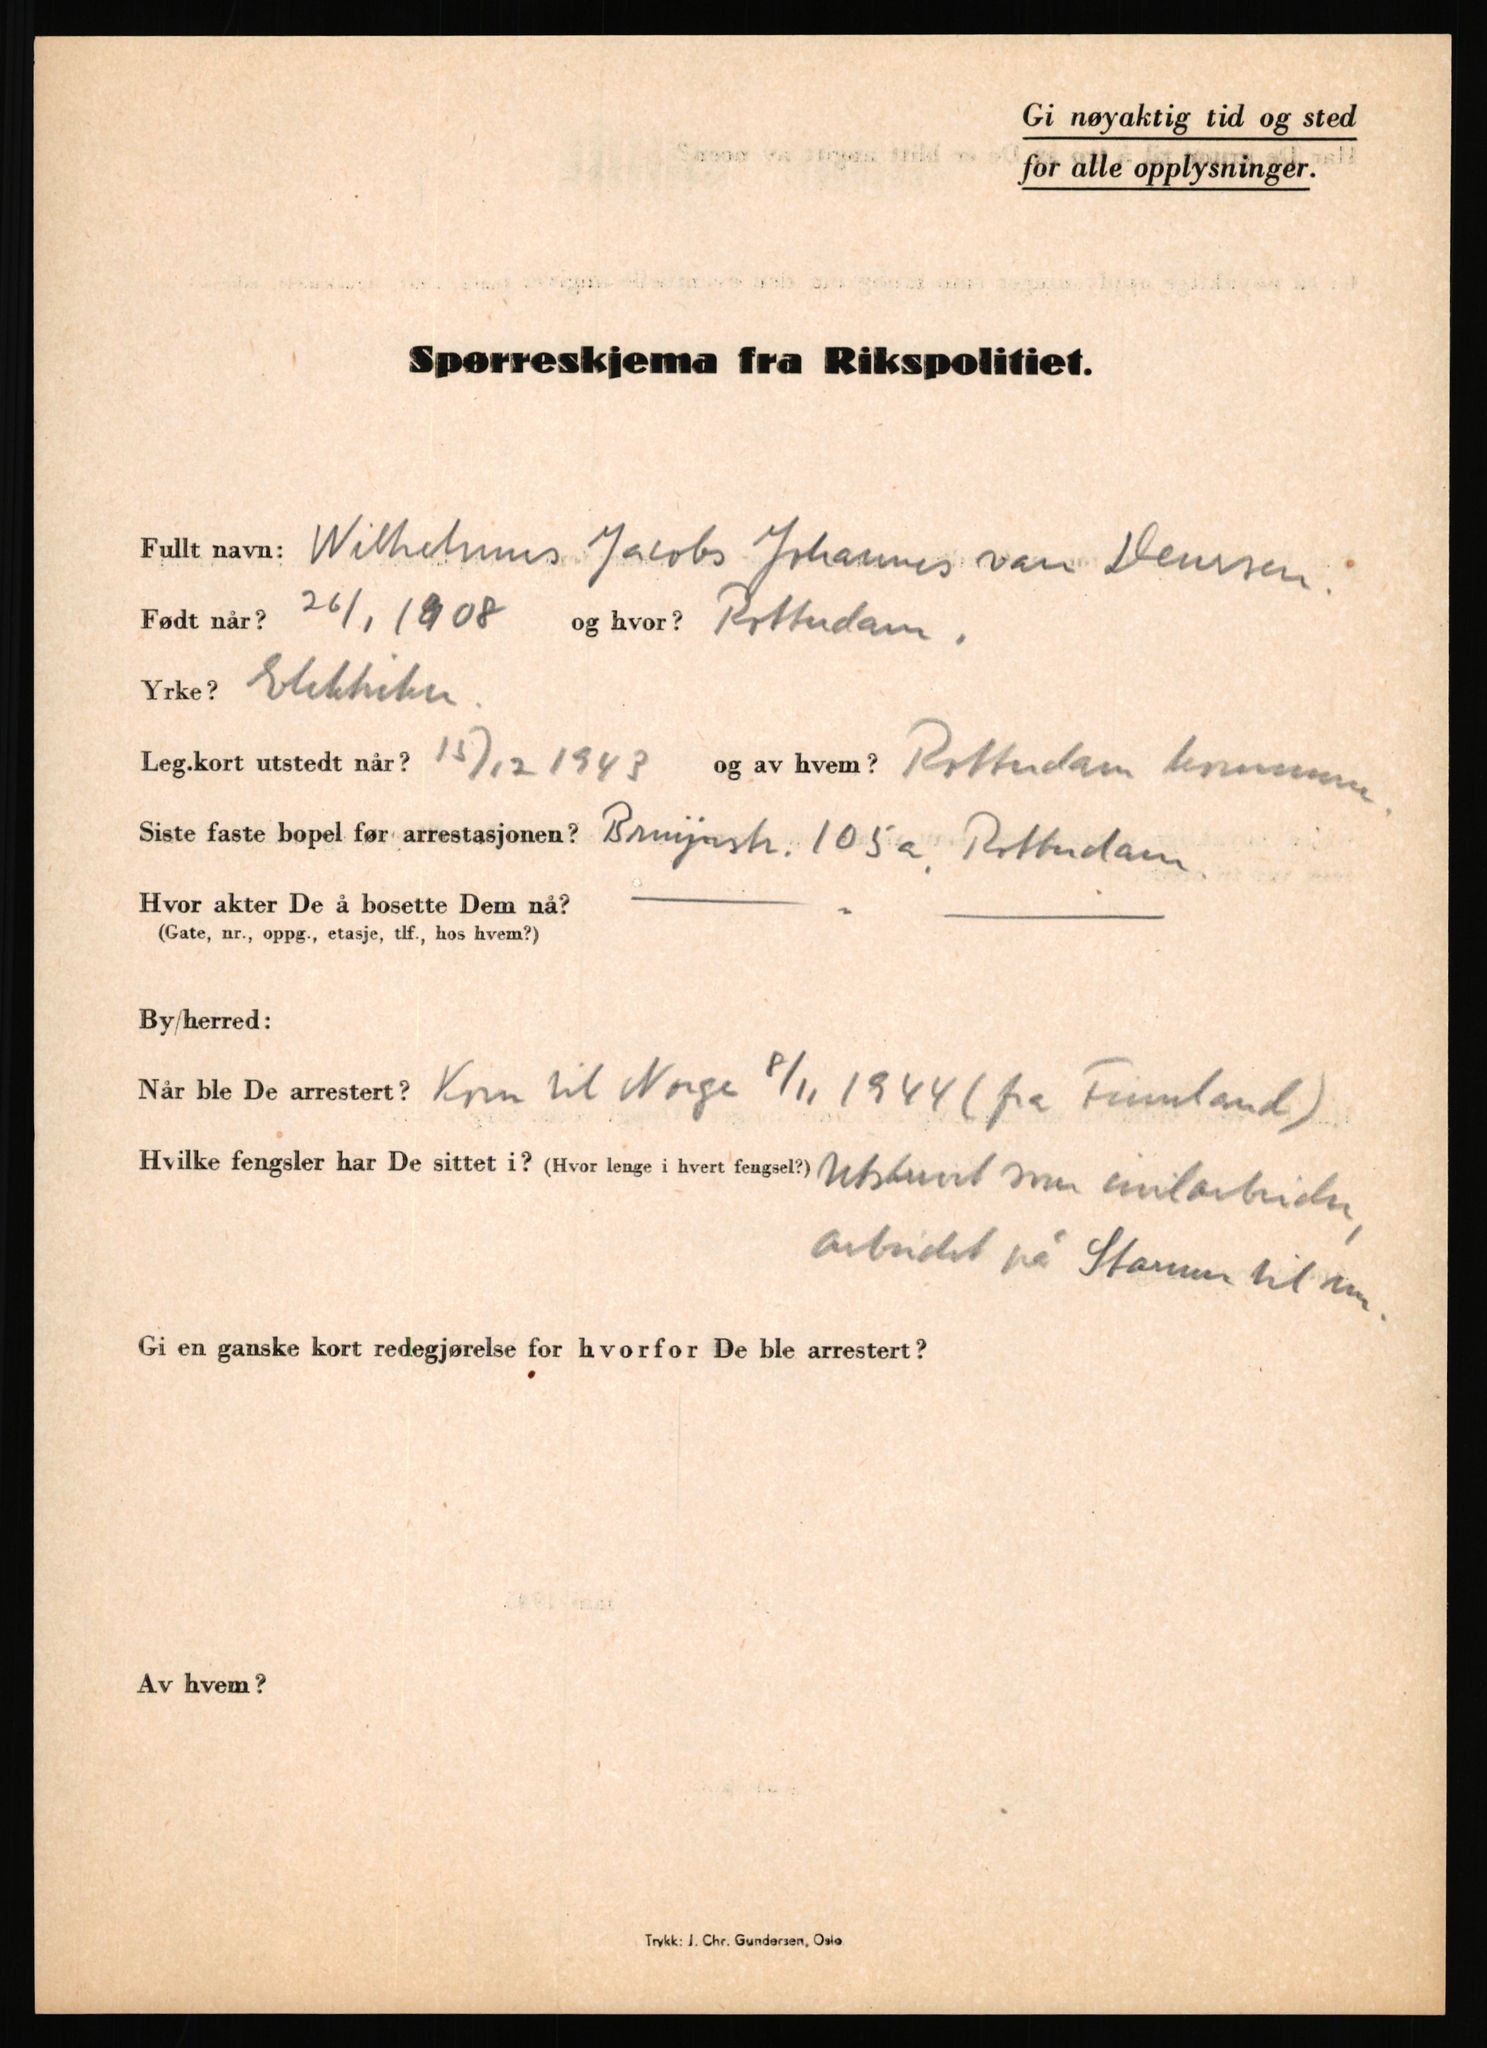 Gi nøyaktig tid og sted
for alle opplysninger.
Spørreskjema fra Rikspolitiet.
Fullt navn: Wilhelmus Jacobs Johannes van Deursen.
Født når? 26/1 1908 og hvor? Rotterdam.
Yrke? Elektriker.
Leg.kort utstedt når? 15/12 1943 og av hvem? Rotterdam kommune.
Siste faste bopel før arrestasjonen? Bruijnstr. 105a, Rotterdam
Hvor akter De å bosette Dem nå? — " —
(Gate, nr., oppg., etasje, tlf., hos hvem?)
By/herred:
Når ble De arrestert? Kom til Norge 8/11 1944 (fra Finnland)
Hvilke fengsler har De sittet i? (Hvor lenge i hvert fengsel?) Utskrevet som sivilarbeider,
arbeidet på til nu.
Gi en ganske kort redegjørelse for hvorfor De ble arrestert?
Av hvem?
Trykk: J. Chr. Gundersen, Oslo